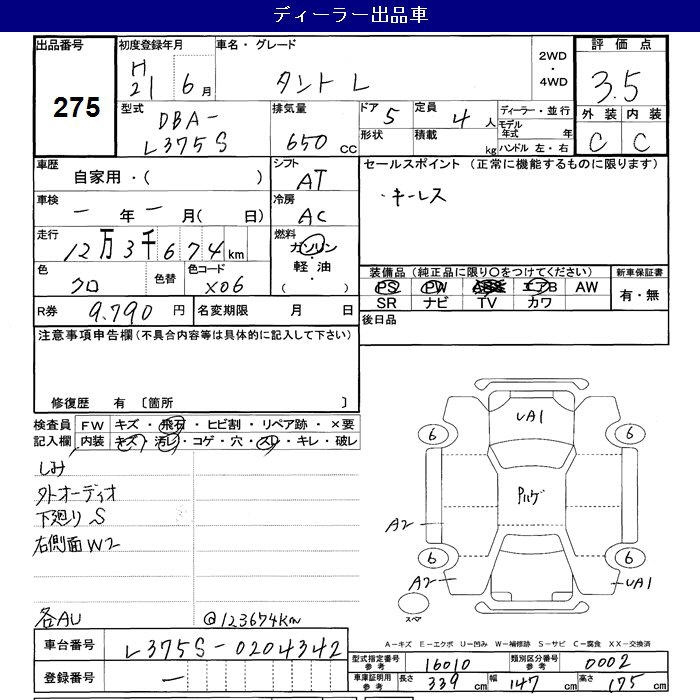 ディーラー出品車
出品番号
275
初度登録年月
H
21 6月
車名・グレード
タント L
2WD
・
4WD
評価点
3.5
外装 内装
C C
型式
DBA-
L375S
排気量
650 CC
ドア 5
定員 4 人
形状
積載 kg
ディーラー・並行
モデル年式 年
ハンドル 左・右
車歴
自家用・( )
シフト
AT
セールスポイント (正常に機能するものに限ります)
・キーレス
車検
一 年 一 月( 日)
冷房
AC
走行
12万3千674km
燃料
ガソリン
・
軽油
( )
色
クロ
色替
色コード
X06
装備品 (純正品に限り○をつけてください)
PS PW エアB AW
SR ナビ TV カワ
新車保証書
有・無
R券 9.790 円
名変期限 月 日
後日品
注意事項申告欄 (不具合内容等は具体的に記入して下さい)
修復歴 有 〔箇所 〕
検査員
記入欄
FW キズ・飛石・ヒビ割・リペア跡・×要
内装 キズ・汚レ・コゲ・穴・スレ・キレ・破レ
しみ
外オーディオ
下廻り S
右側面 W2
各AU @123674Km
UA1
6
6
Pルーゲ
A2
6
6
A2
UA1
スペア
A-キズ E-エクボ U-凹み W-補修跡 S-サビ C-腐食 XX-交換済
車台番号 L375S-0204342
登録番号 一
型式指定番号
参考
16010
類別区分番号
参考
0002
車庫証明用
参考
長さ 339 cm
幅 147 cm
高さ 175 cm